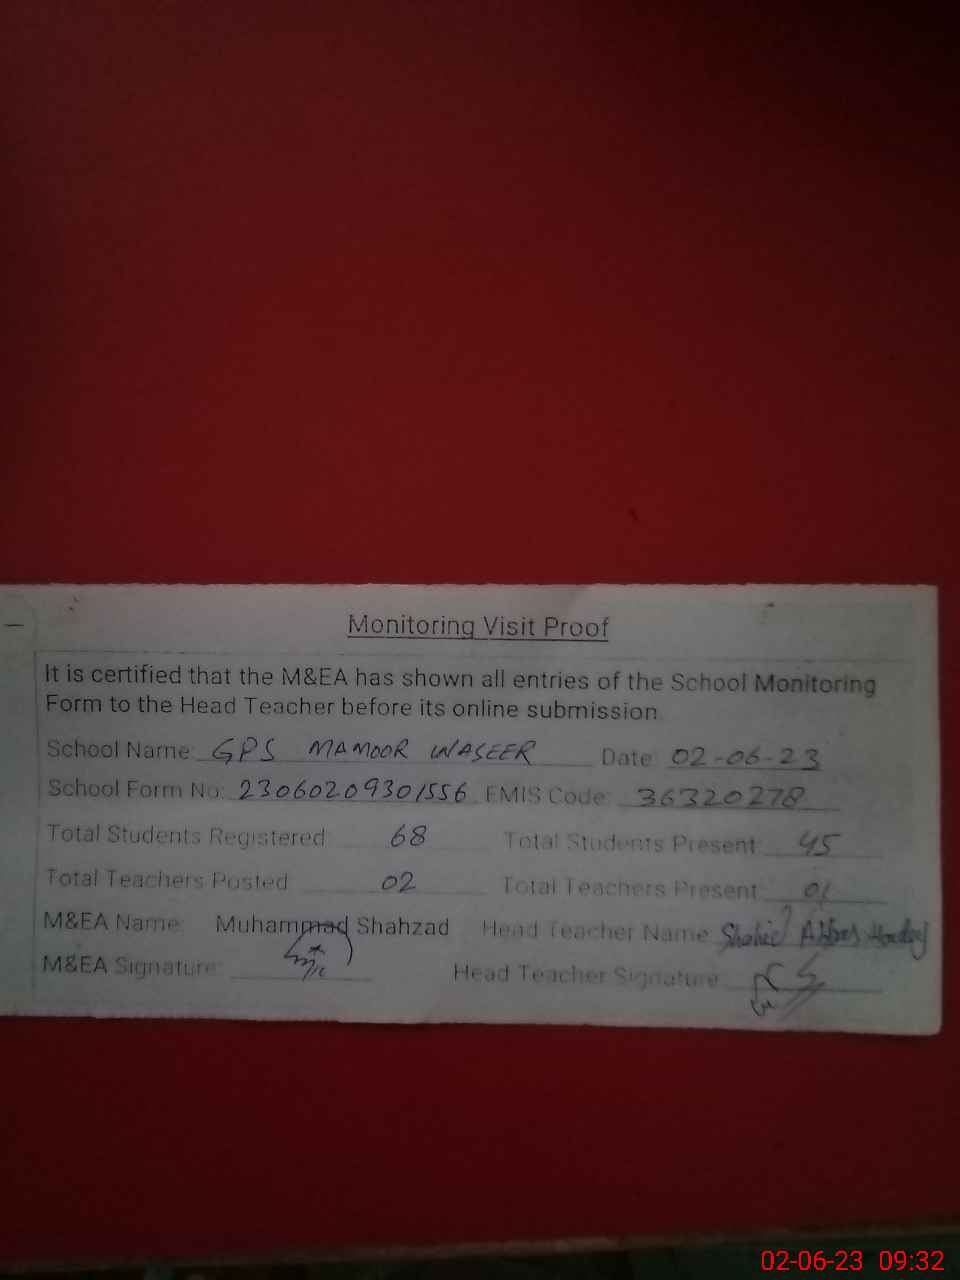 Monitoring Visit Proof
It is certified that the M&EA has shown all entries of the School Monitoring
Form to the Head Teacher before its online submission.
School Name: GPS MAMOOR WASEER Date: 02-06-23
School Form No: 23060209301556 EMIS Code: 36320278
Total Students Registered 68 Total Students Present: 45
Total Teachers Posted 02 Total Teachers Present: 01
M&EA Name: Muhammad Shahzad Head Teacher Name: Shahid Abbas
M&EA Signature: Head Teacher Signature:
02-06-23 09:32